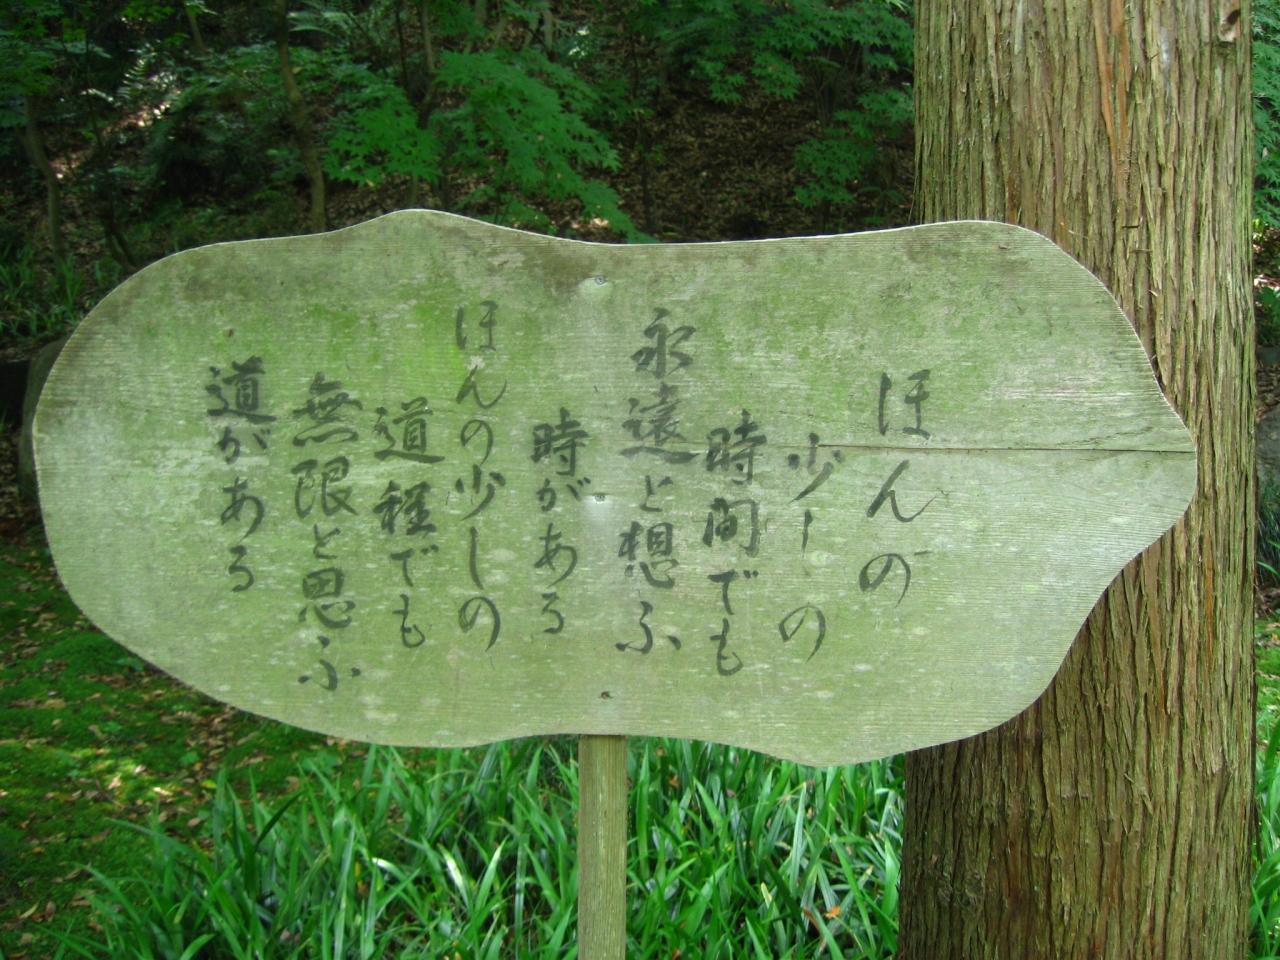 ほんの
少しの
時間でも
永遠と想ふ
時がある
ほんの少しの
道程でも
無限と思ふ
道がある